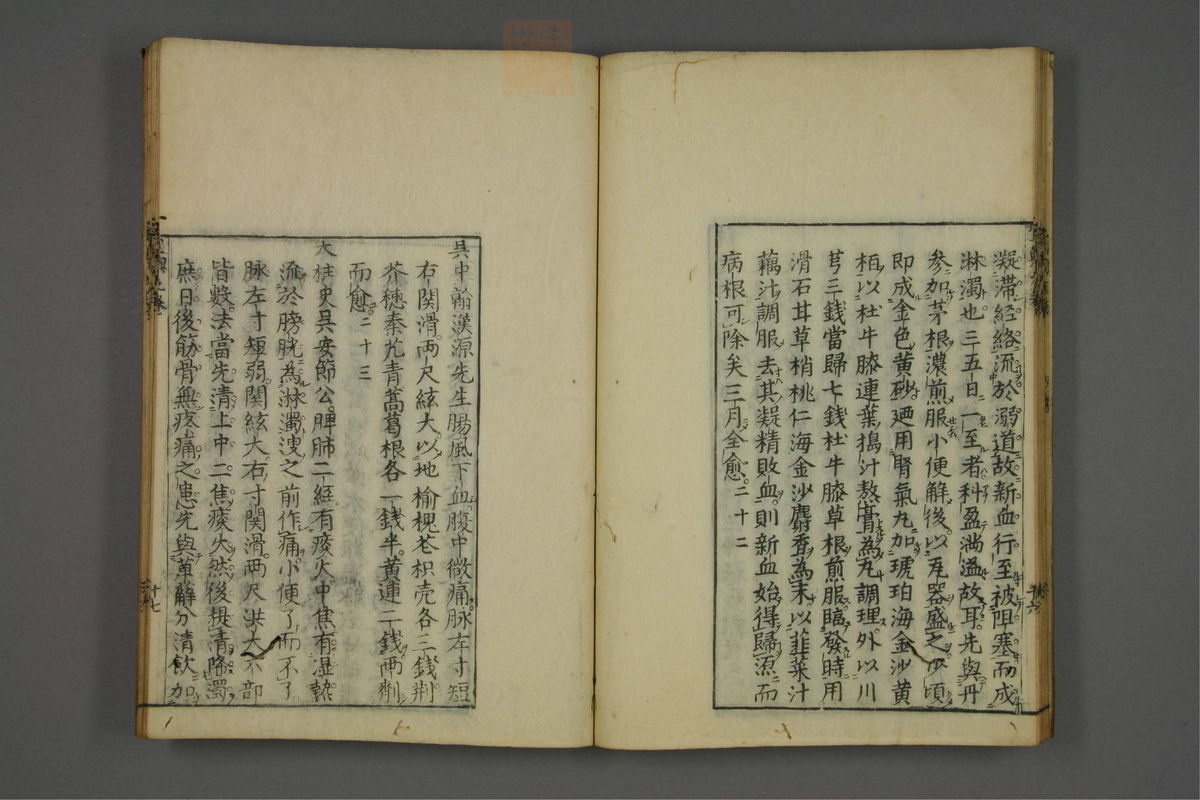 凝滯經絡流於溺道故新血行至被阻塞而成
淋濁也三五日一至者科盈滿溢故耳先與丹
參加茅根濃煎服小便解後以瓦器盛之少頃
即成金色黃砂廼用腎氣丸加琥珀海金沙黃
栢以杜牛膝連葉搗汁熬膏為丸調理外以川
芎三錢當歸七錢杜牛膝草根煎服臨發時用
滑石甘草梢桃仁海金沙麝香為末以韭菜汁
藕汁調服去其凝精敗血則新血始得歸源而
病根可除矣三月全愈二十二
吳中翰漢源先生腸風下血腹中微痛脉左寸短
右関滑两尺絃大以地榆槐花枳壳各三錢荆
芥穗秦艽青蒿葛根各一錢半黄連二錢两劑
而愈二十三
大柱史吳安節公脾肺二經有痰火中焦有湿熱
流於膀胱為淋濁溲之前作痛小便了而不了
脉左寸短弱関絃大右寸関滑两尺洪大六部
皆數去當先清上中二焦痰火然後提清降濁
庶日後筋骨無疼痛之患先與萆薢分清飲加
十七